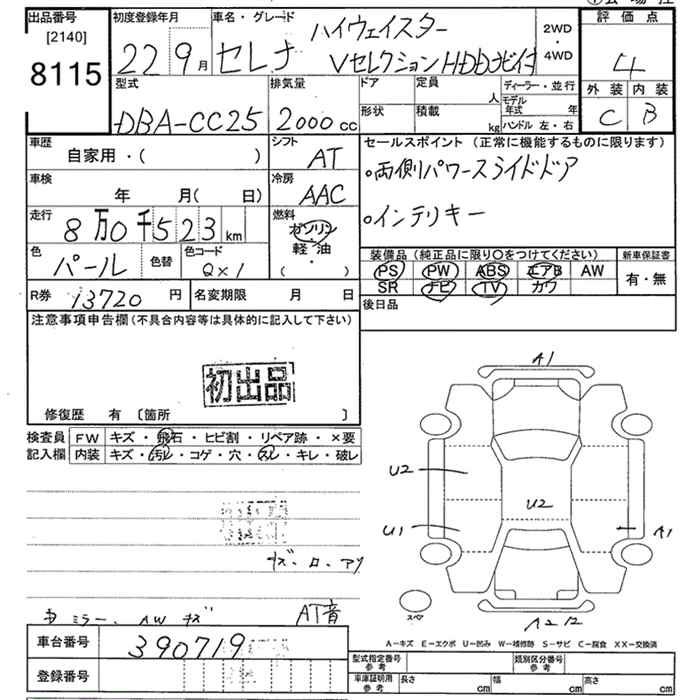 出品番号
[2140]
8115
初度登録年月
22 9月
車名・グレード
セレナ
ハイウェイスター
Vセレクション HDDナビ付
2WD
・
4WD
評価点
4
外装 内装
C B
型式
DBA-CC25
排気量
2000cc
ドア
定員
人
形状
積載
kg
ディーラー・並行
モデル年式 年
ハンドル 左・右
車歴
自家用・( )
シフト
AT
車検
年 月(日)
冷房
AAC
走行
8万0千523km
燃料
ガソリン
軽・油
( ・ )
色
パール
色替
色コード
QX1
R券 13720円
名変期限 月 日
セールスポイント(正常に機能するものに限ります)
・両側パワースライドドア
・インテリキー
装備品(純正品に限り○をつけてください)
PS PW ABS エアB AW
SR ナビ TV カワ
新車保証書
有・無
後日品
注意事項申告欄(不具合内容等は具体的に記入して下さい)
初出品
修復歴 有 〔箇所 〕
検査員
記入欄
FW キズ・飛石・ヒビ割・リペア跡・×要
内装 キズ・汚レ・コゲ・穴・スレ・キレ・破レ
ミラー、AWキズ
AT音
A1
U2
U2
U1
A1
A2 12
スペア
A-キズ E-エクボ U-凹み W-補修跡 S-サビ C-腐食 XX-交換済
車台番号 390719
登録番号
型式指定番号
参考
類別区分番号
参考
車庫証明用
参考
長さ cm
幅 cm
高さ cm